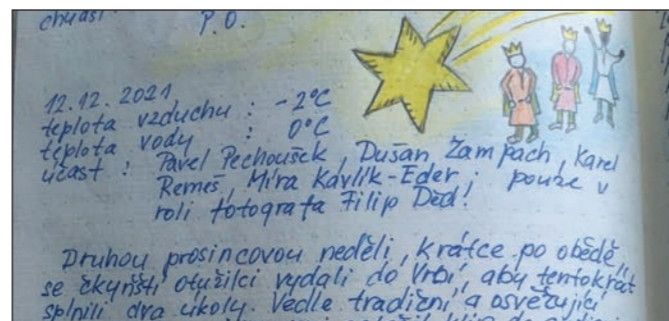 P.O.
12.12.2021
teplota vzduchu : -2°C
teplota vody : 0°C
účast : Pavel Pechoušek, Dušan Žampach, Karel
Remeš, Míra Kavlík-Eder; pouze v
roli fotografa Filip Děd!
Druhou prosincovou neděli, krátce po obědě,
se čkyňští otužilci vydali do Vrbí, aby tentokrát
splnili dva úkoly. Vedle tradiční a osvěžující